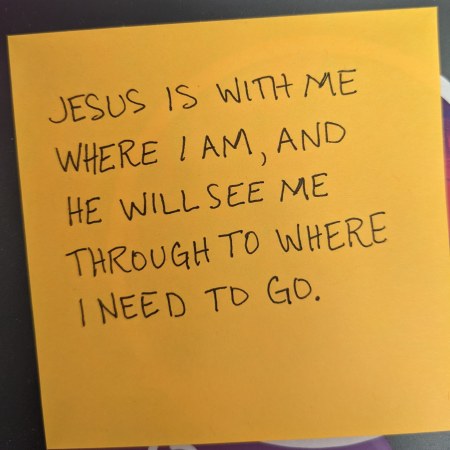 JESUS IS WITH ME
WHERE I AM, AND
HE WILL SEE ME
THROUGH TO WHERE
I NEED TO GO.